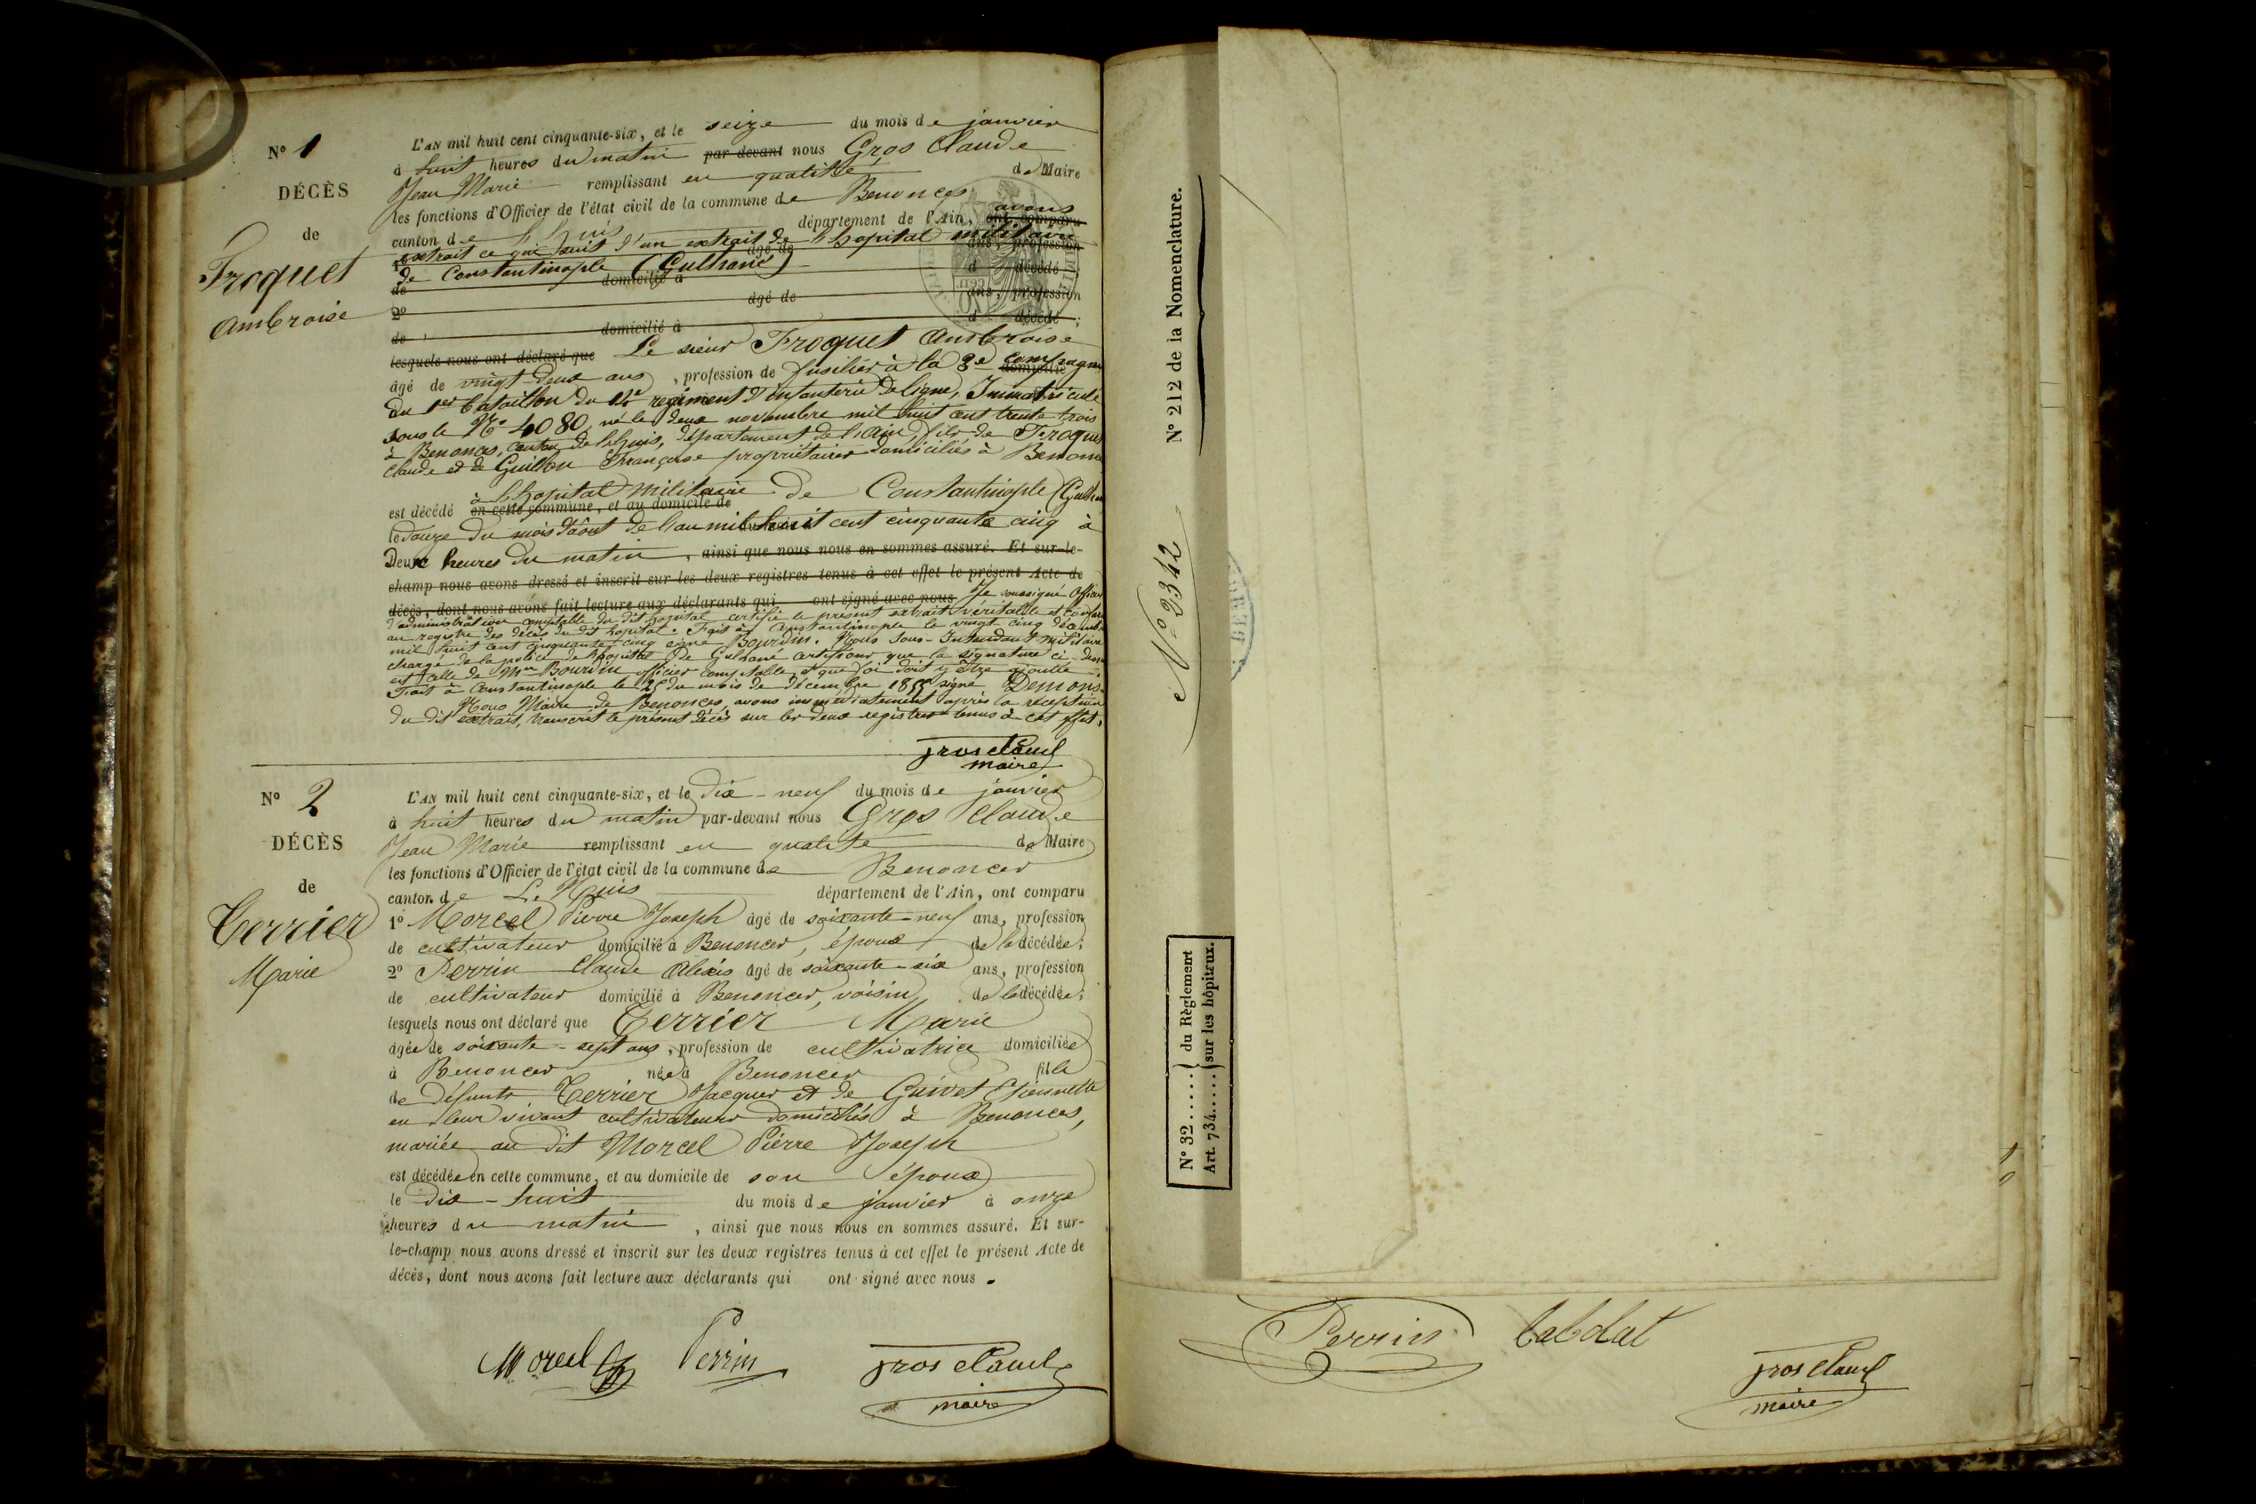 N° 1
DÉCÈS
de
Froquet
Ambroise
L'AN mil huit cent cinquante-six, et le seize du mois de janvier
à huit heures du matin par devant nous Gros Claude
Jean Marie remplissant en qualité de Maire
les fonctions d'Officier de l'état civil de la commune de Benonces
canton de L'huis département de l'Ain, ont comparu avons
1° extrait ce qui suit d'un extrait de l'hopital militaire âgé de ans, profession
de Constantinople (Gulhané) domicilié à d décédé;
2° âgé de ans, profession
de domicilié à d décédé;
lesquels nous ont déclaré que Le sieur Froquet Ambroise
âgé de vingt-deux ans, profession de fusilier à la 3e compagnie domicilié
du 1er bataillon du 14e régiment d'infanterie de ligne, Immatriculé
sous le N° 4080, né le deux novembre mil huit cent trente trois
à Benonces, canton de Lhuis, département de l'Ain, fils de Froquet
Claude et de Guillon Françoise propriétaires domiciliés à Benonces
à l'hopital militaire de Constantinople (Gulhané
est décédé en cette commune, et au domicile de
le douze du mois d'août de l'an mil huit cent cinquante cinq à
Deux heures du matin, ainsi que nous nous en sommes assuré. Et sur-le-
champ nous avons dressé et inscrit sur les deux registres tenus à cet effet le présent Acte de
décès, dont nous avons fait lecture aux déclarants qui ont signé avec nous Je soussigné Officier
d'administration comptable du dit hopital certifie le présent extrait véritable et conforme
au registre des décès du dit hopital. Fait à Constantinople le vingt cinq décembre
mil huit cent cinquante cinq signé Bourdin. Nous Sous-Intendant militaire
chargé de la police de l'hopital de Gulhané certifions que la signature ci-dessus
est celle de Mr Bourdin officier comptable, et que foi doit y être ajoutée
Fait à Constantinople le 25 du mois de décembre 1855 signé Demons.
Nous Maire de Benonces, avons immédiatement après la réception
du dit extrait, transcrit le présent décès sur les deux registres tenus à cet effet.
gros claud
maire
N° 2
DÉCÈS
de
Terrier
Marie
L'AN mil huit cent cinquante-six, et le dix-neuf du mois de janvier
à huit heures du matin par-devant nous Gros Claude
Jean Marie remplissant en qualité de Maire
les fonctions d'Officier de l'état civil de la commune de Benonces
canton de L'Huis département de l'Ain, ont comparu
1° Morcel Pierre Joseph âgé de soixante-neuf ans, profession
de cultivateur domicilié à Benonces, époux de la décédée;
2° Perrin Claude Alexis âgé de soixante-six ans, profession
de cultivateur domicilié à Benonces, voisin de la décédée;
lesquels nous ont déclaré que Terrier Marie
âgée de soixante-sept ans, profession de cultivatrice domiciliée
à Benonces née à Benonces fille
de défunts Terrier Jacques et de Guivet Etiennette
en leur vivant cultivateurs domiciliés à Benonces,
mariée au dit Morcel Pierre Joseph
est décédée en cette commune, et au domicile de son époux
le dix-huit du mois de janvier à onze
heures du matin, ainsi que nous nous en sommes assuré. Et sur-
le-champ nous avons dressé et inscrit sur les deux registres tenus à cet effet le présent Acte de
décès, dont nous avons fait lecture aux déclarants qui ont signé avec nous.
Morcel Perrin gros claud
maire
N° 212 de la Nomenclature.
N° 2342
N° 32 ..... } du Règlement
Art. 734 ..... } sur les hôpitaux.
Perrin
gros claud
maire